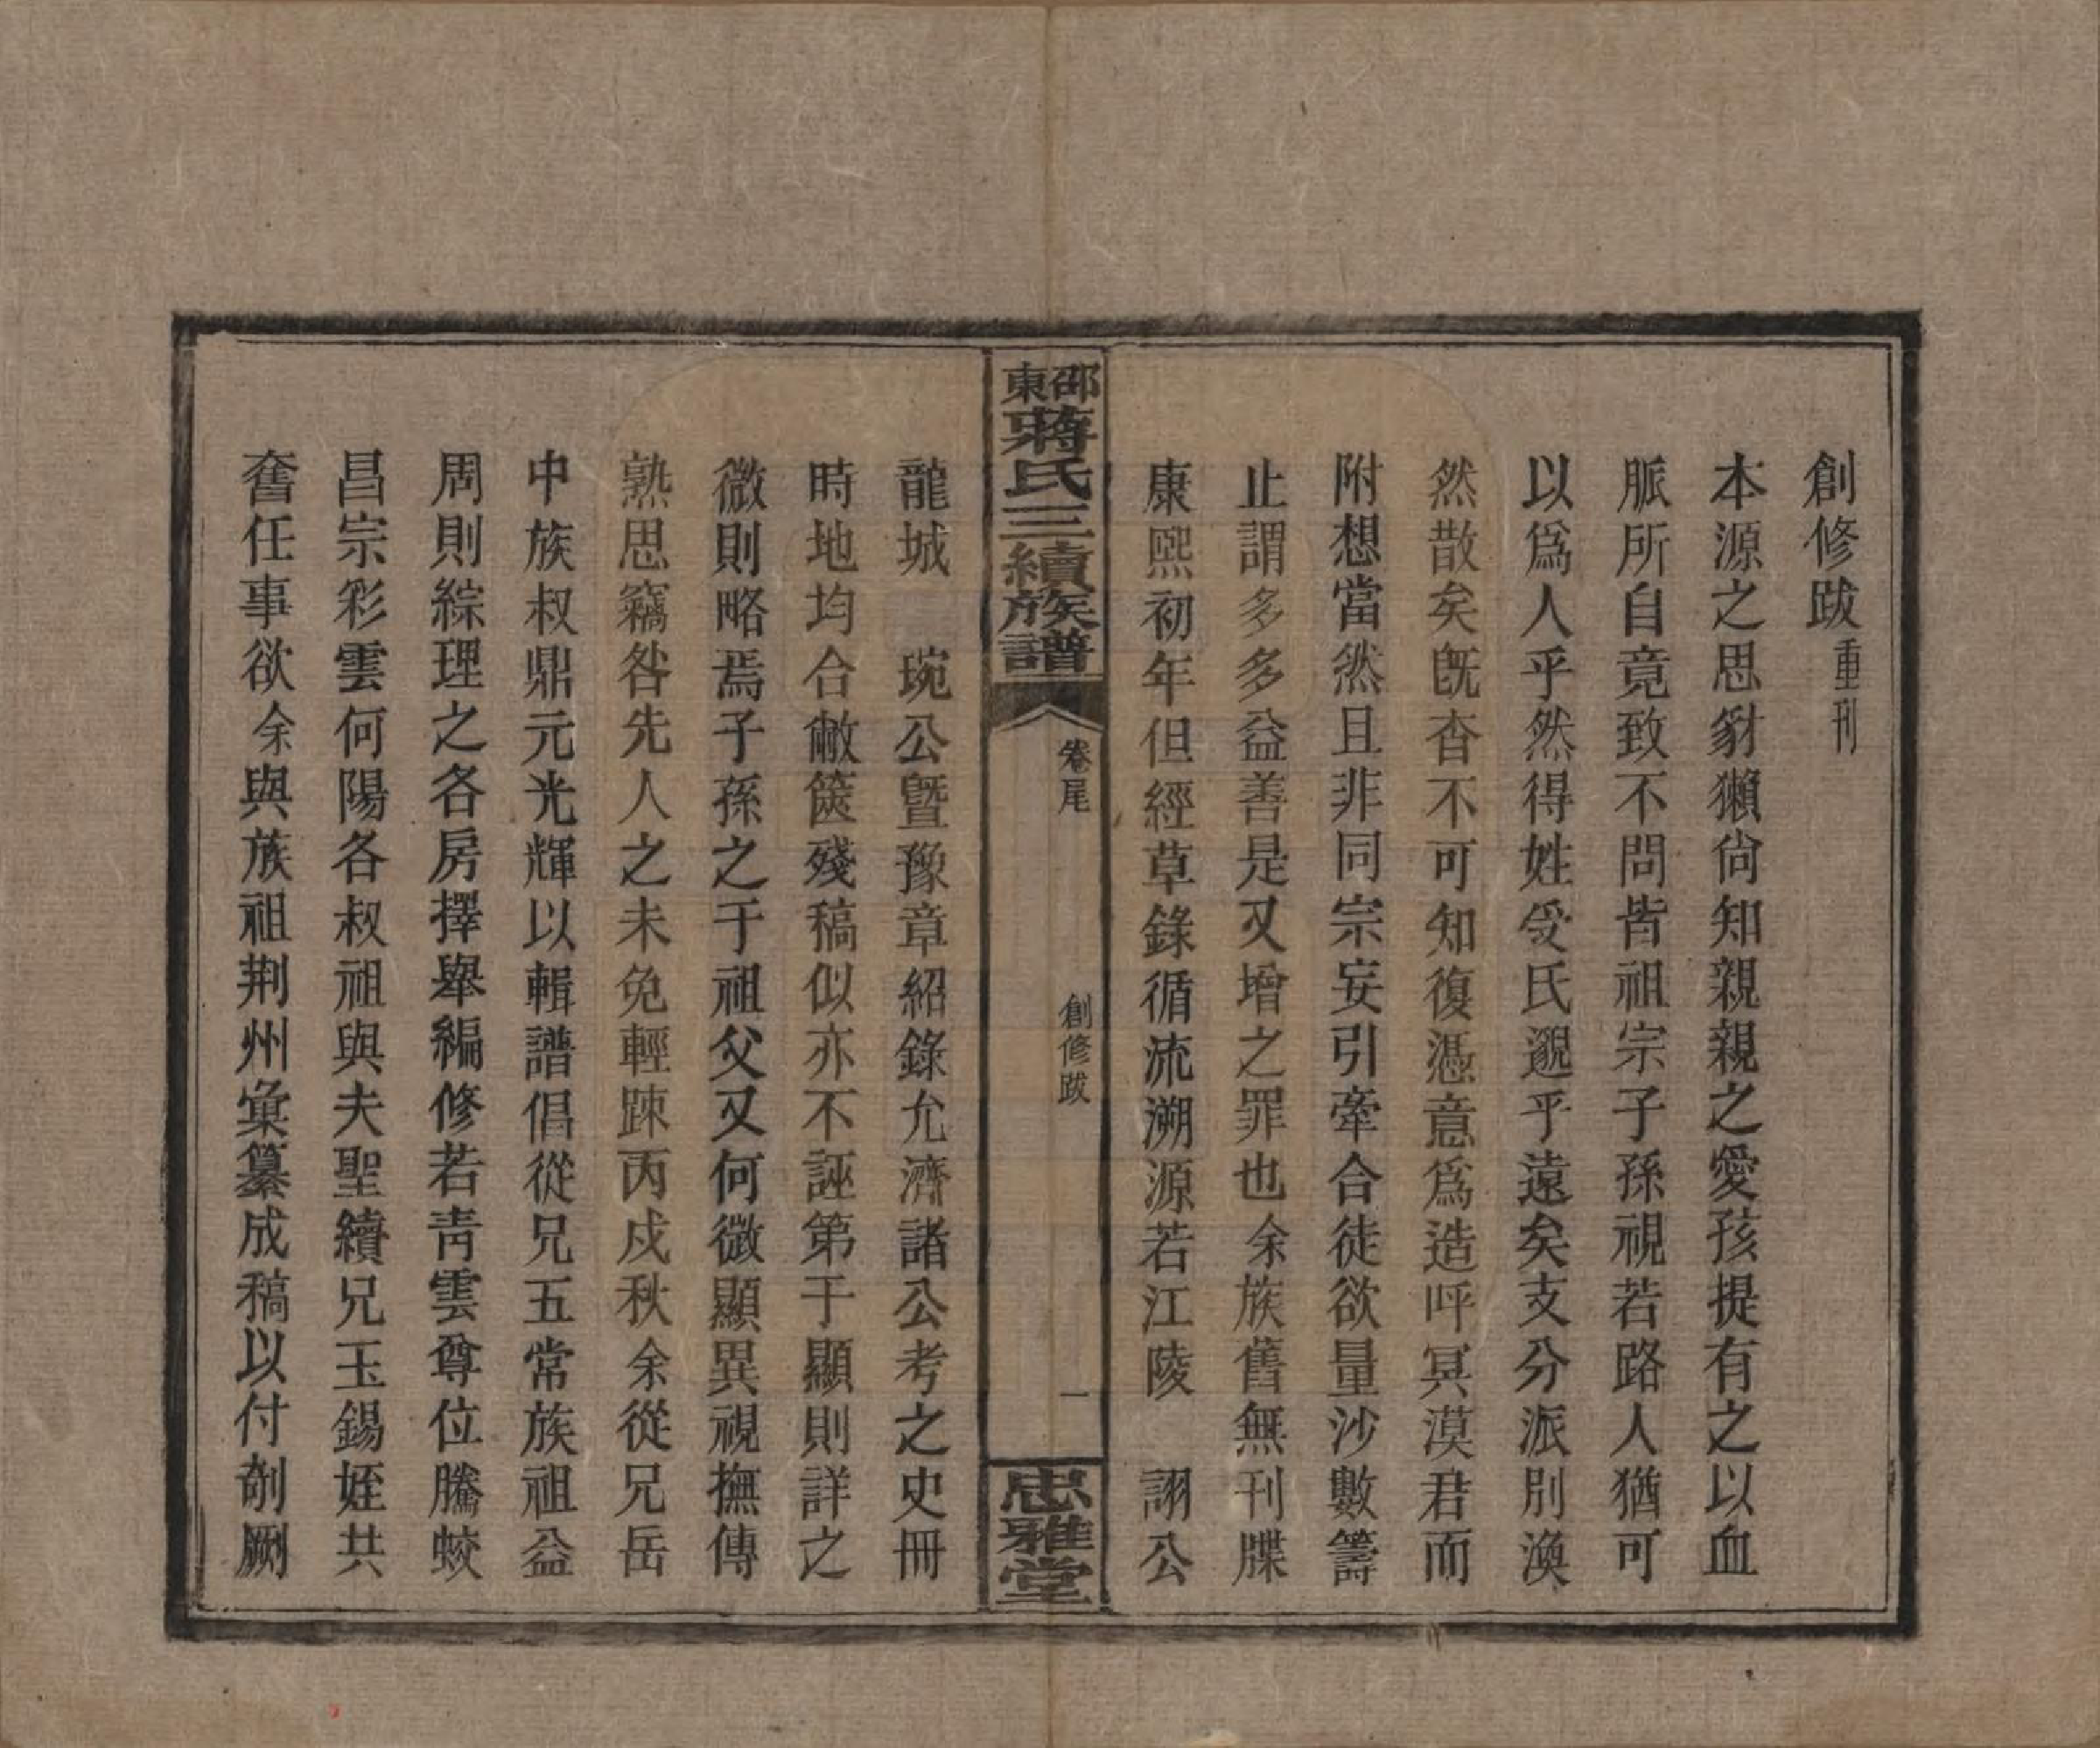 創修跋重刊
本源之思豺獺尙知親親之愛孩提有之以血
脈所自竟致不問皆祖宗子孫視若路人猶可
以爲人乎然得姓受氏邈乎遠矣支分派別渙
然散矣旣杳不可知復憑意爲造呼冥漠君而
附想當然且非同宗妄引牽合徒欲量沙數籌
止謂多多益善是又增之罪也余族舊無刊牒
康熙初年但經草錄循流溯源若江陵　詡公
邵東蔣氏三續族譜
卷尾
創修跋
一
忠雅堂
龍城　琬公曁豫章紹錄允濟諸公考之史冊
時地均合敝篋殘稿似亦不誣第于顯則詳之
微則略焉子孫之于祖父又何微顯異視撫傳
熟思竊咎先人之未免輕踈丙戌秋余從兄岳
中族叔鼎元光輝以輯譜倡從兄五常族祖益
周則綜理之各房擇舉編修若靑雲尊位騰蛟
昌宗彩雲何陽各叔祖與夫聖續兄玉錫姪共
奮任事欲余與族祖荆州彙纂成稿以付剞劂